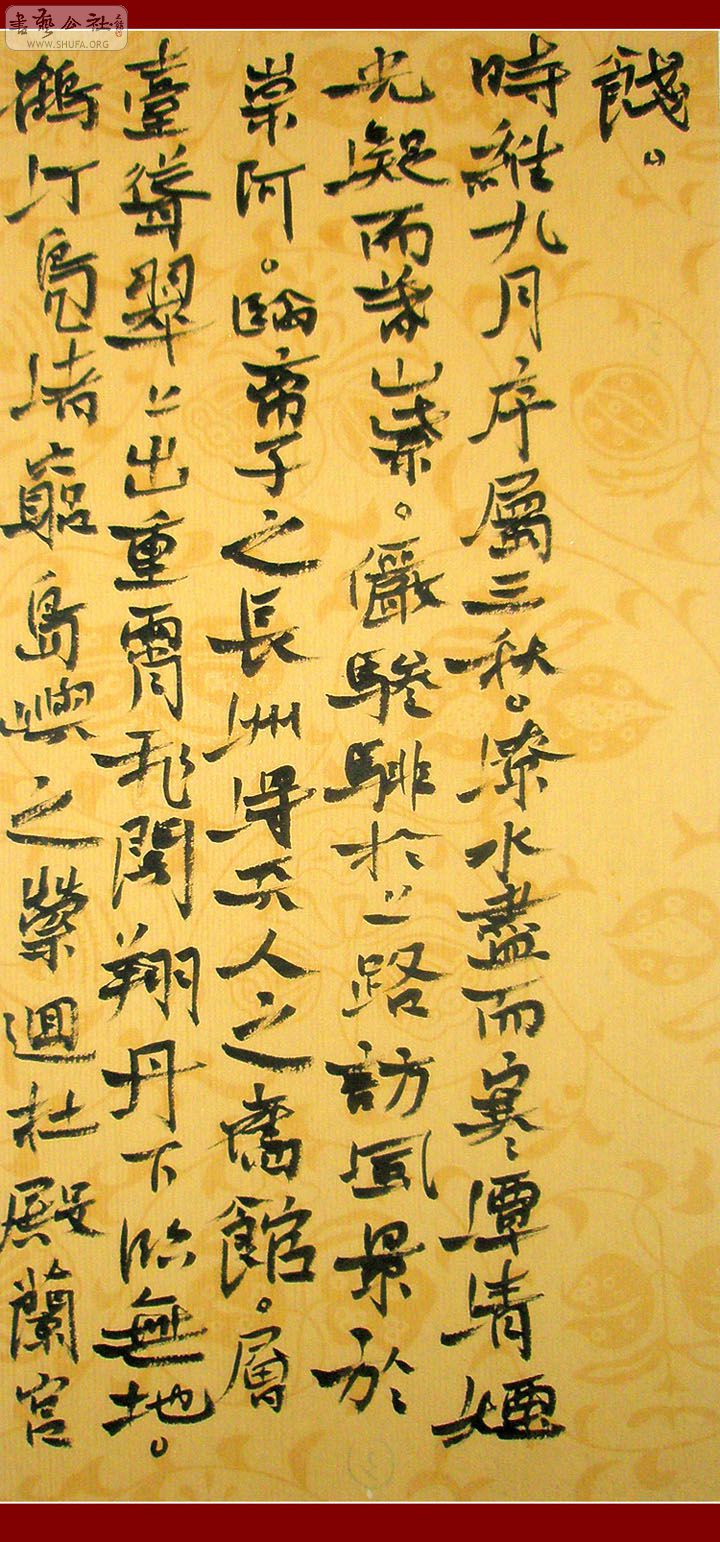 書藝公社
WWW.SHUFA.ORG
餞。
時維九月序屬三秋。潦水盡而寒潭清煙
光凝而暮山紫。儼驂騑於上路訪風景於
崇阿。臨帝子之長洲得天人之舊館。層
臺聳翠上出重霄飛閣翔丹下臨無地。
鶴汀鳧渚窮島嶼之縈迴桂殿蘭宮